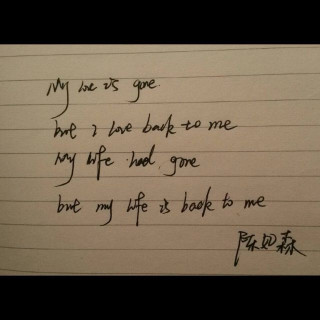 My love is gone.
but I love back to me
My life had gone
but my life is back to me
陈如森